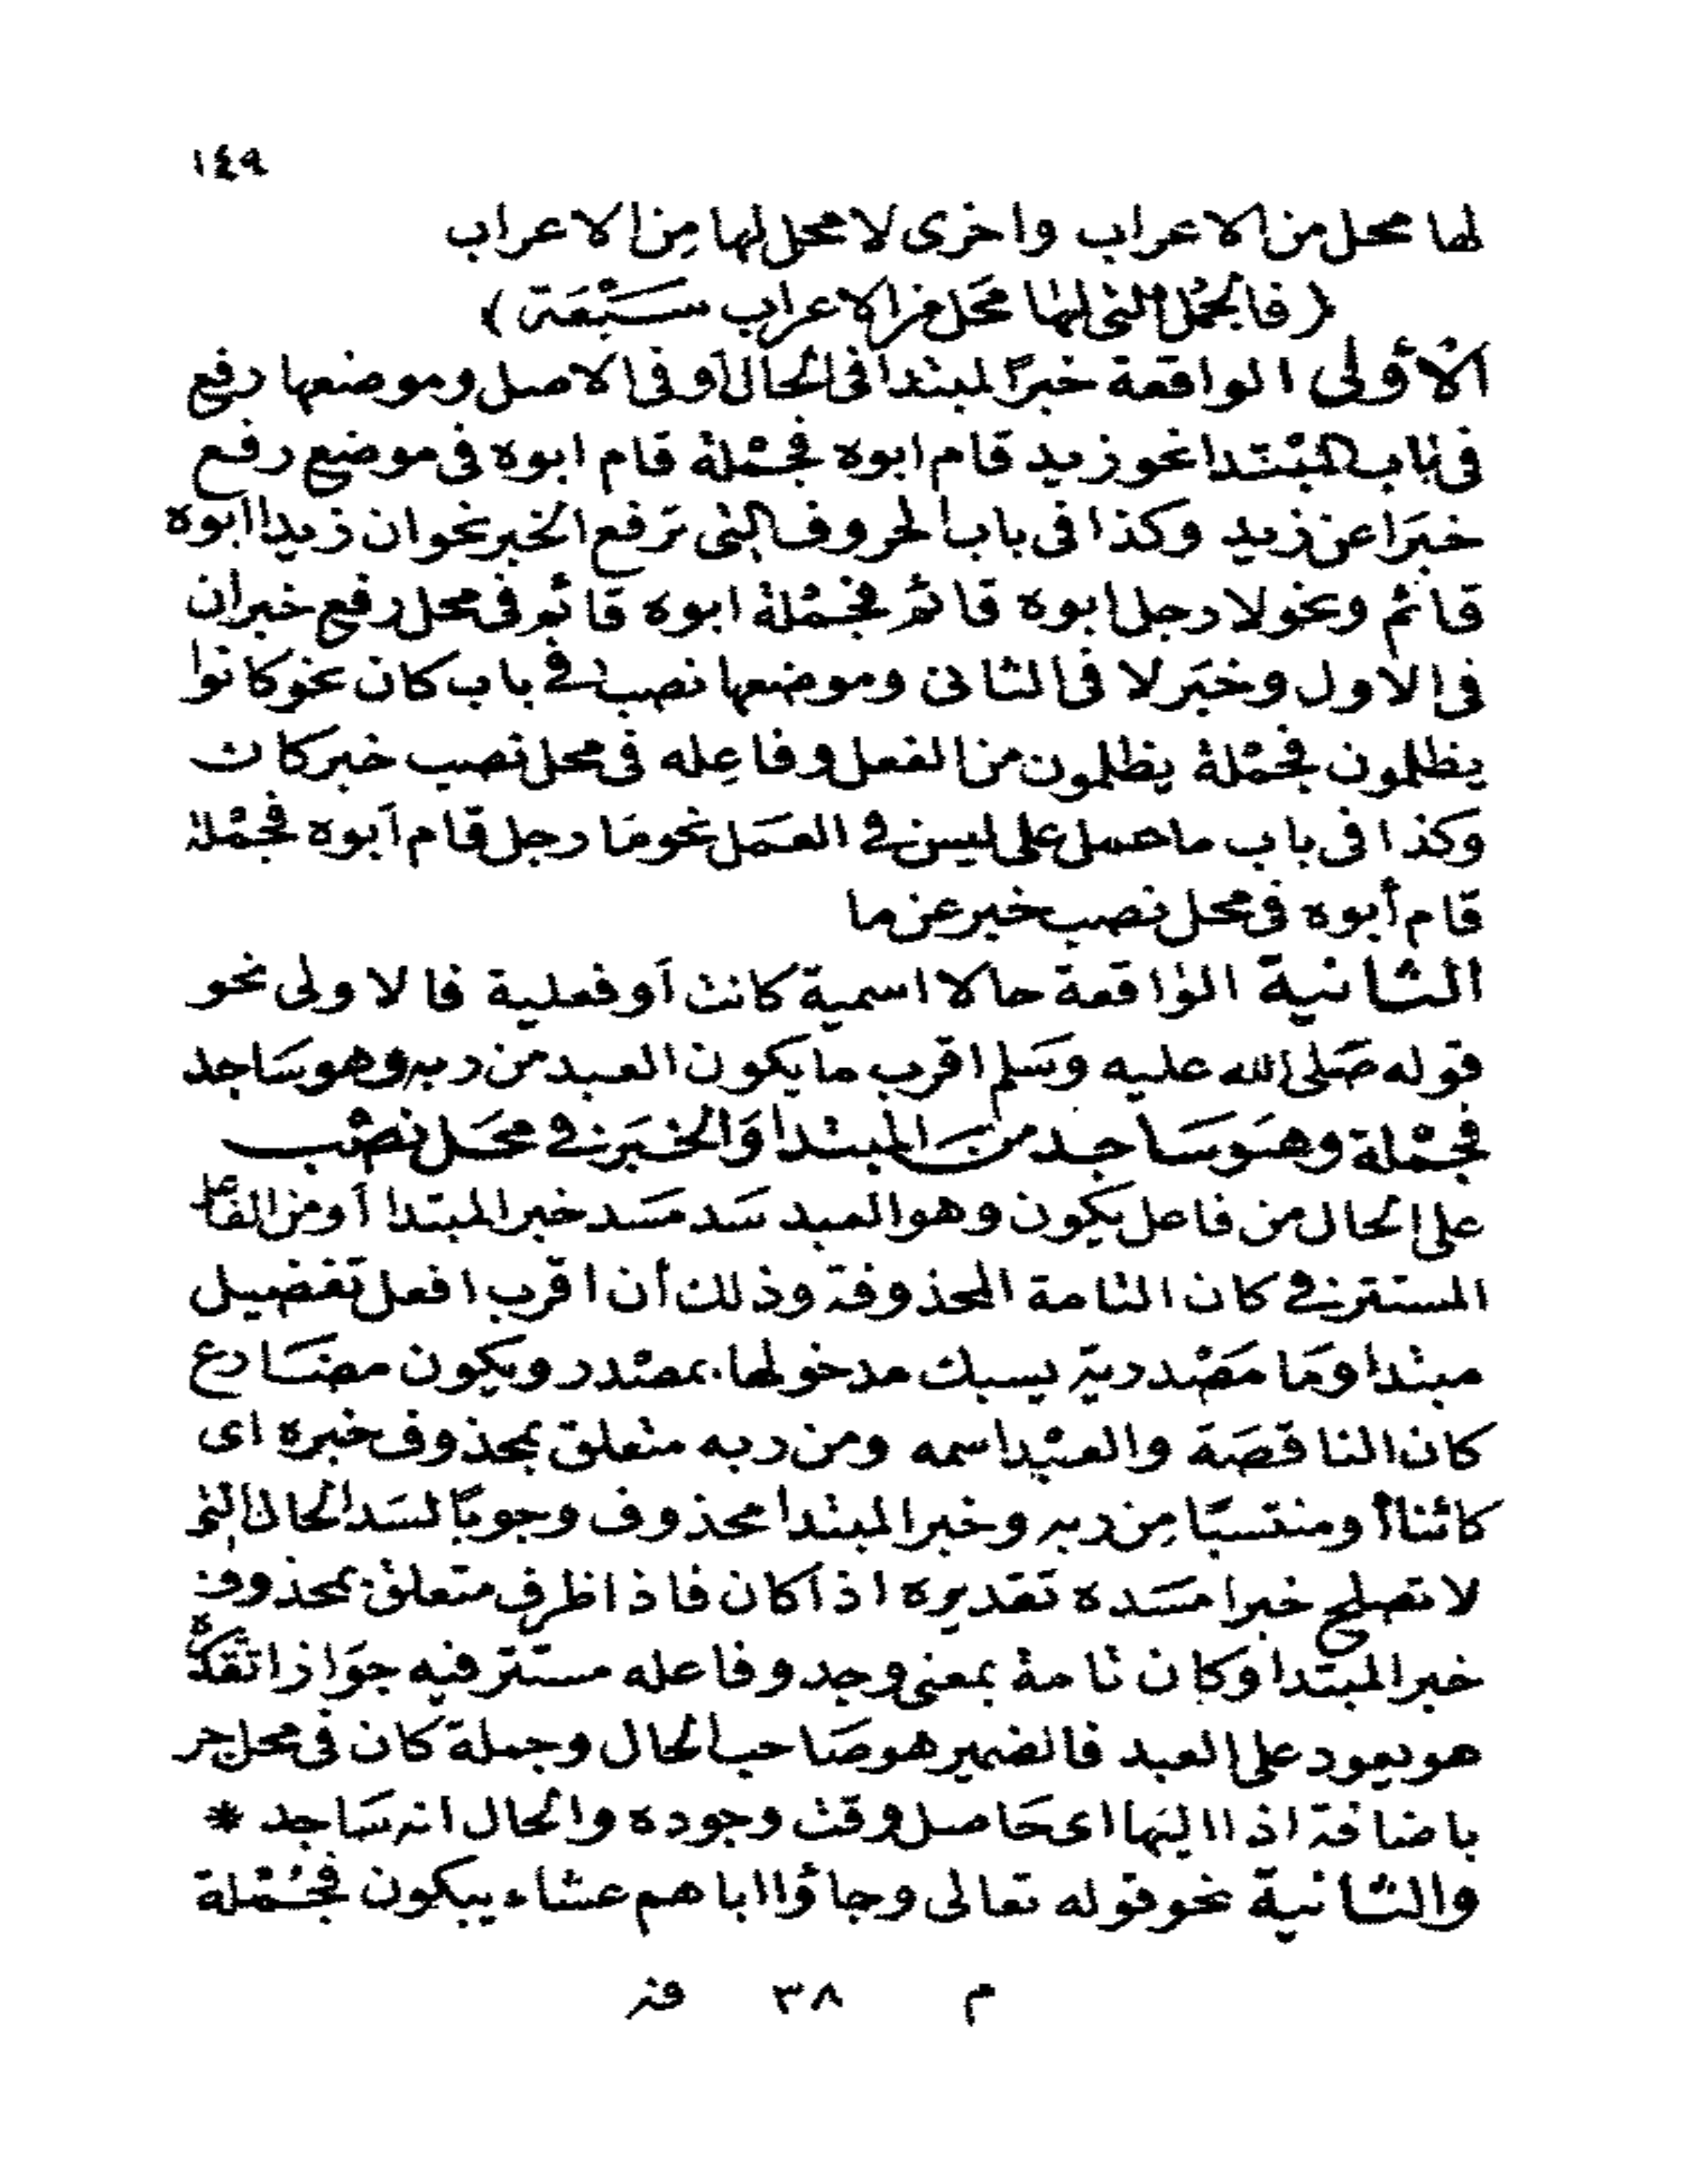 ١٤٩
لها محل من الاعراب واخرى لا محل لها مِن الاعراب
(فالجُمل التى لها مَحَل من الاعراب سَبْعَة)
الأولى الواقعة خبرًا لمبتدا فى الحال أو فى الاصل وموضعها رفع
فى باب المبْتدا نحو زيد قام ابوه فجمْلة قام ابوه فى موضع رفع
خبَرا عن زيد وكذا فى باب الحروف التى تَرفع الخبر نحو ان زيدا ابوه
قائم ونحو لا رجل ابوه قائم فجمْلة ابوه قائم فى محل رفع خبر ان
فى الاول وخبَر لا فى الثانى وموضعها نصب فى باب كان نحو كانوا
يظلمون فجمْلة يظلمون من الفعل وفاعِله فى محل نصب خبر كان
وكذا فى باب ما حمل على ليس فى العمَل نحو مَا رجل قام أبوه فجمْلة
قام أبوه فى محل نصب خبر عن ما
الثانية الواقعة حالا اسمية كانت أو فعلية فالاولى نحو
قوله صَلى الله عليه وسَلم اقرب ما يكون العبد من ربه وهو سَاجد
فجمْلة وهوَ سَاجد من المبتدا وَالخبَر فى محَل نصْب
على الحال من فاعل يكون وهو العبد سَد مسَد خبر المبتدا أو من الفاعل
المستتر فى كان التامة المحذوفة وذلك أن اقرب افعل تفضيل
مبتدا ومَا مَصْدرية يسبك مدخولها بمصْدر ويكون مضَارع
كان الناقصَة والعبْد اسمه ومن ربه متعلق بمحذوف خبره اى
كائنا أو منتسبًا مِن ربه وخبر المبتدا محذوف وجوبًا لسَد الحال التى
لا تصلح خبرا مسَده تقديره اذا كان فاذا ظرف متعلق بمحذوف
خبر المبتدا وكان تامة بمعنى وجد وفاعله مستتر فيه جوَازا تقديره
هو يعود على العبد فالضمير هو صَاحب الحال وجملة كان فى محل جر
باضافة اذا اليها اى حَاصل وقت وجوده والحال انه سَاجد *
والثانية نحو قوله تعالى وجاؤا اباهم عشاء يبكون فجمْلة
م ٣٨ فـ